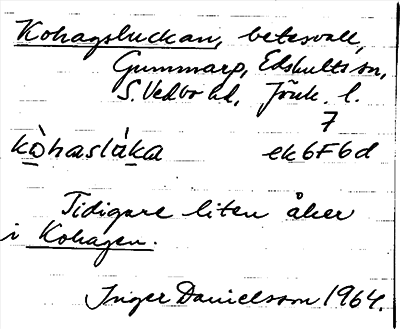 Kohagsluckan, betesvall,
Gummarp, Edshults sn,
S. Vedbo hd, Jönk. l.
7
kòhaslùka ek6F6d
Tidigare liten åker
i Kohagen.
Inger Danielsson 1964.